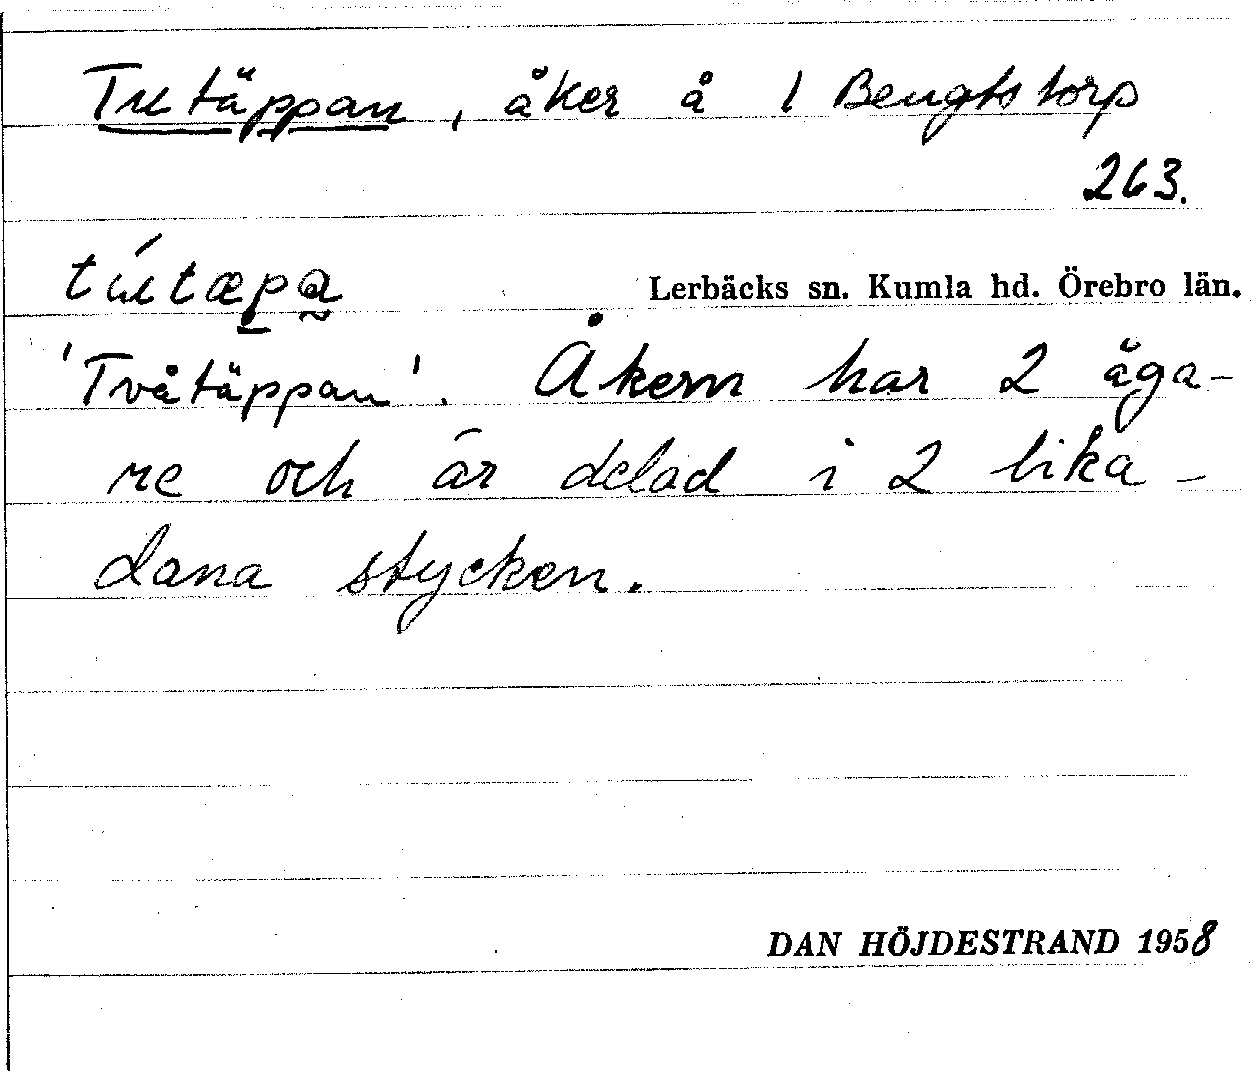 Tutäppan, åker å 1 Bengtstorp
263.
tútæpa
Lerbäcks sn. Kumla hd. Örebro län.
'Tvåtäppan'. Åkern har 2 äga-
re och är delad i 2 lika-
dana stycken.
DAN HÖJDESTRAND 1958